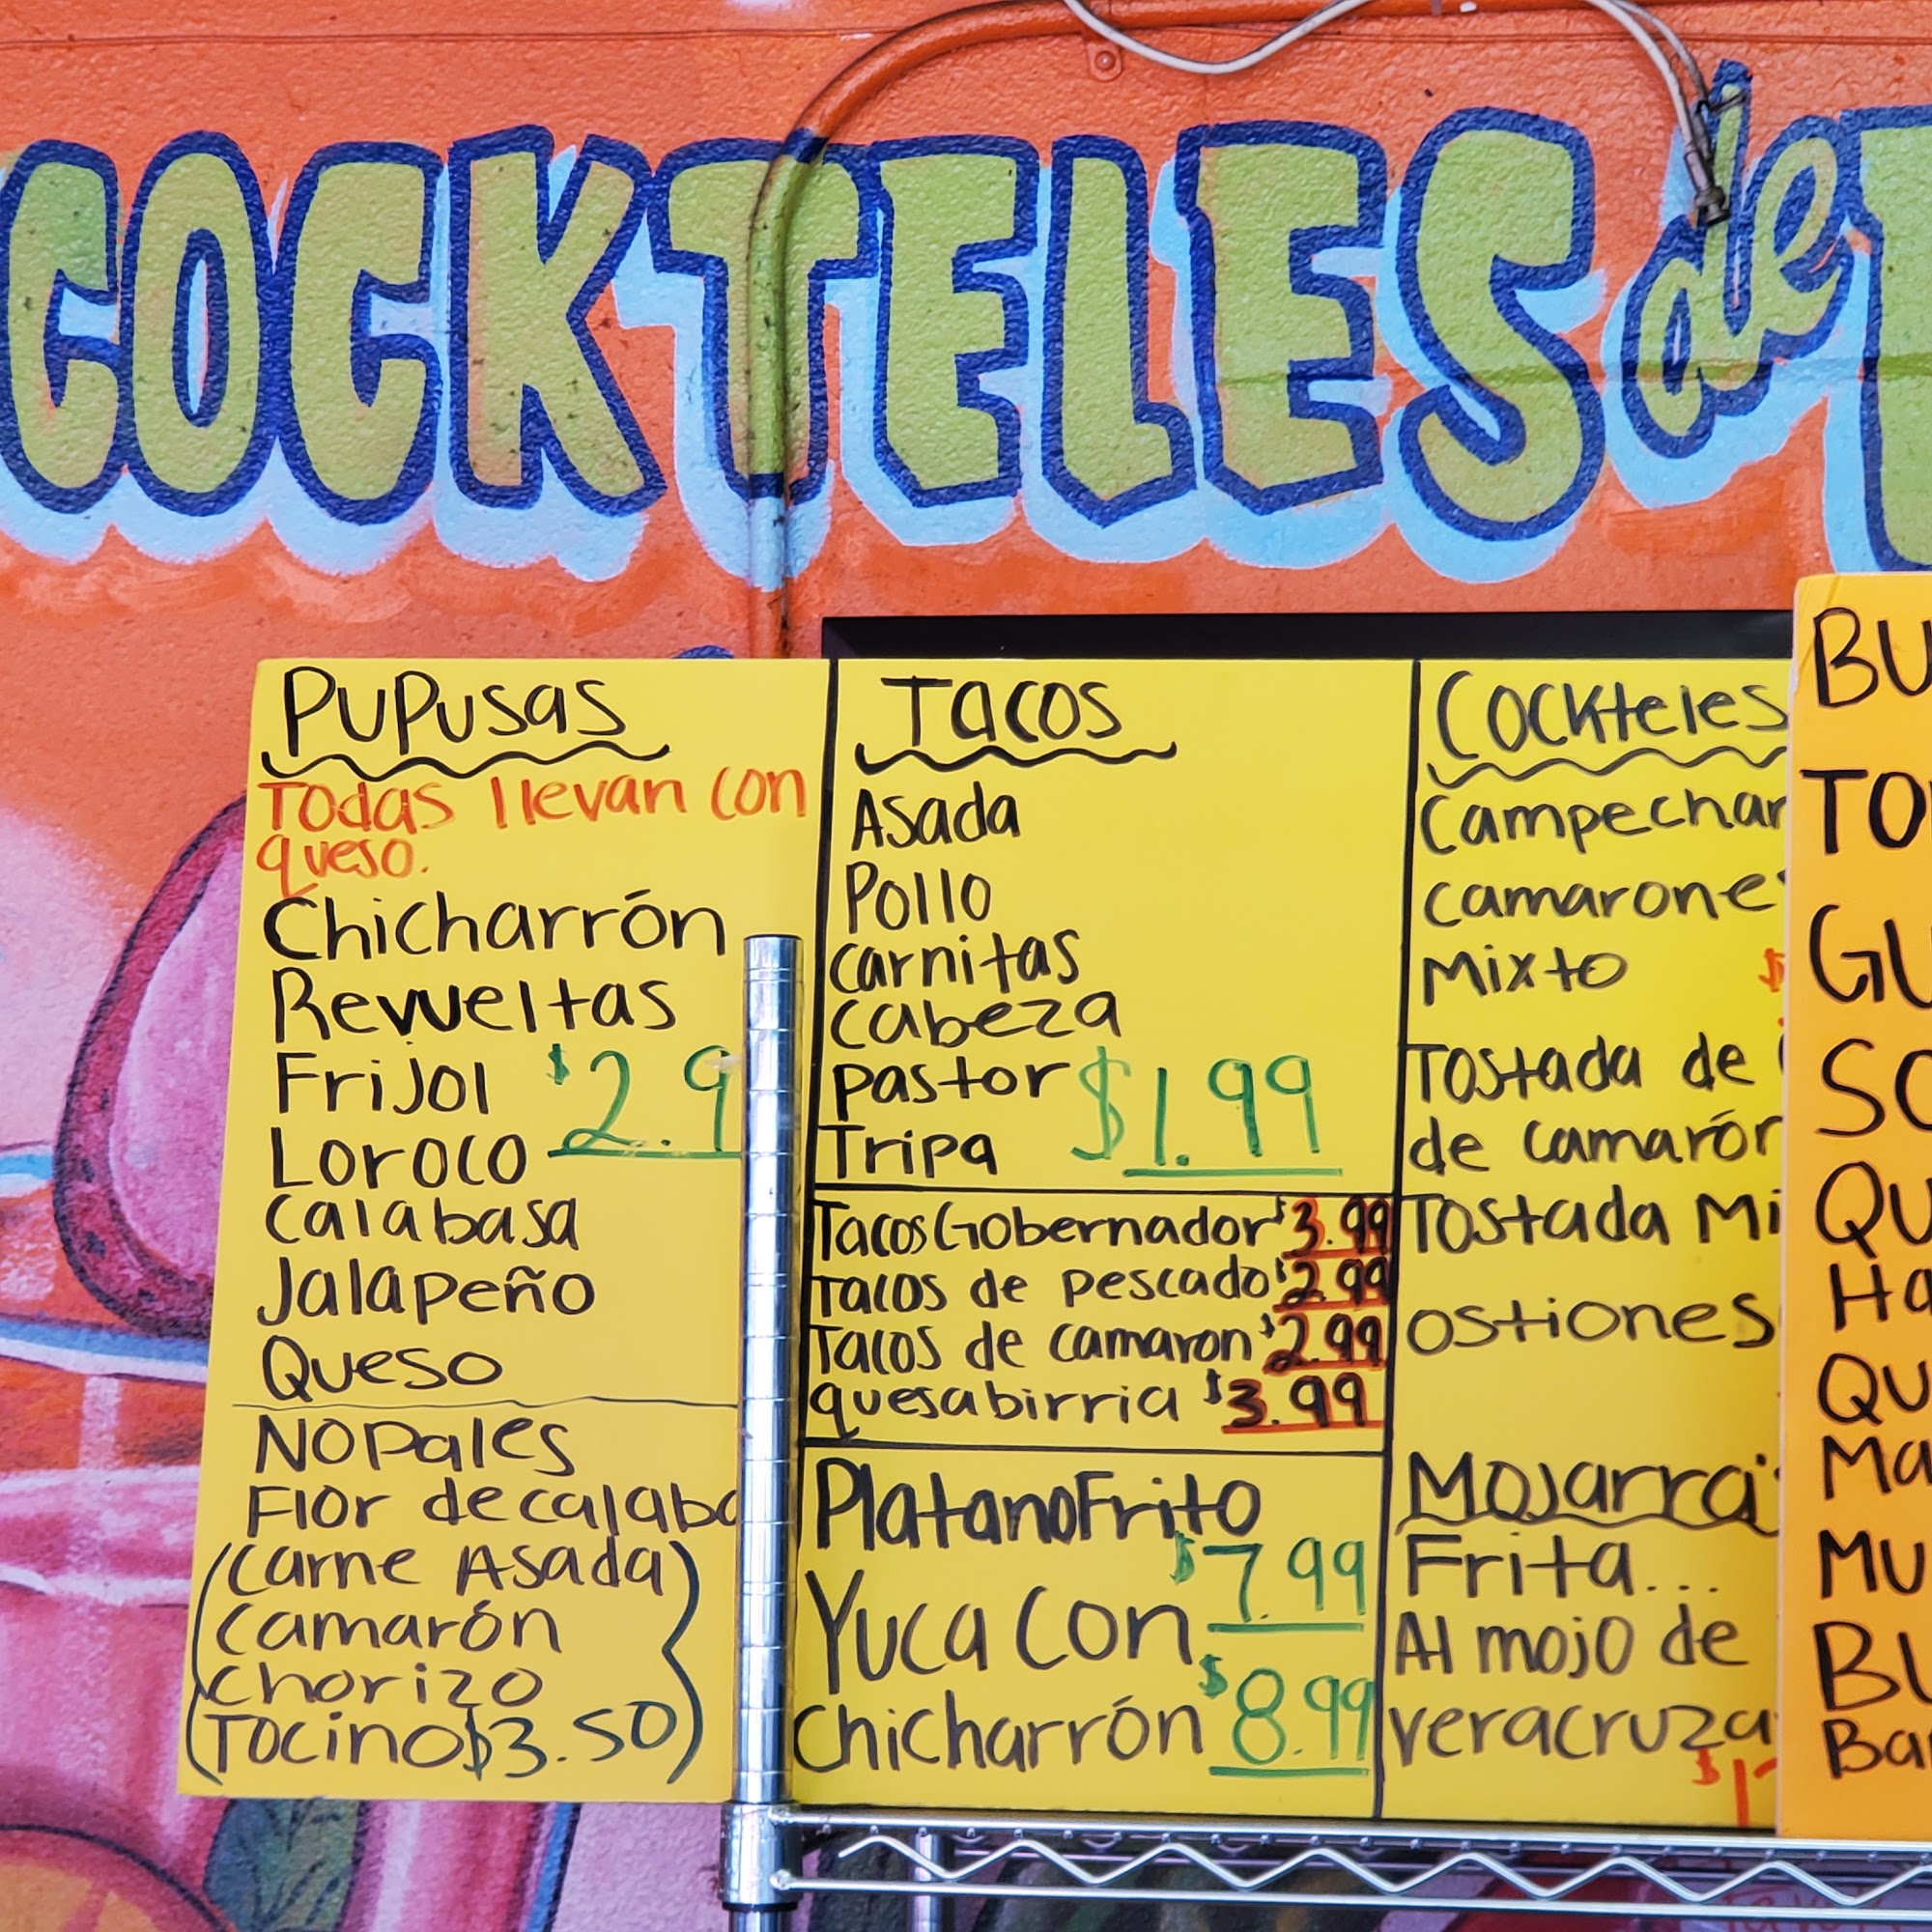 COCKTELES de
PUPUSAS
Todas llevan con
queso.
Chicharrón
Revueltas
Frijol $2.9
Loroco
Calabasa
Jalapeño
Queso
Nopales
Flor de calaba
(Carne Asada)
Camarón
Chorizo
Tocino $3.50
Tacos
Asada
Pollo
Carnitas
Cabeza
pastor $1.99
Tripa
Tacos Gobernador $3.99
Tacos de pescado $2.99
Tacos de camaron $2.99
quesabirria $3.99
Platano Frito
$7.99
Yuca Con
Chicharrón $8.99
Cockteles
Campechan
Camarone
Mixto $
Tostada de
de camarón
Tostada Mi
ostiones
Mojarra
Frita...
Al mojo de
veracruza
$1
BU
TO
GU
SO
QU
Ha
QU
Ma
MU
BU
Ba